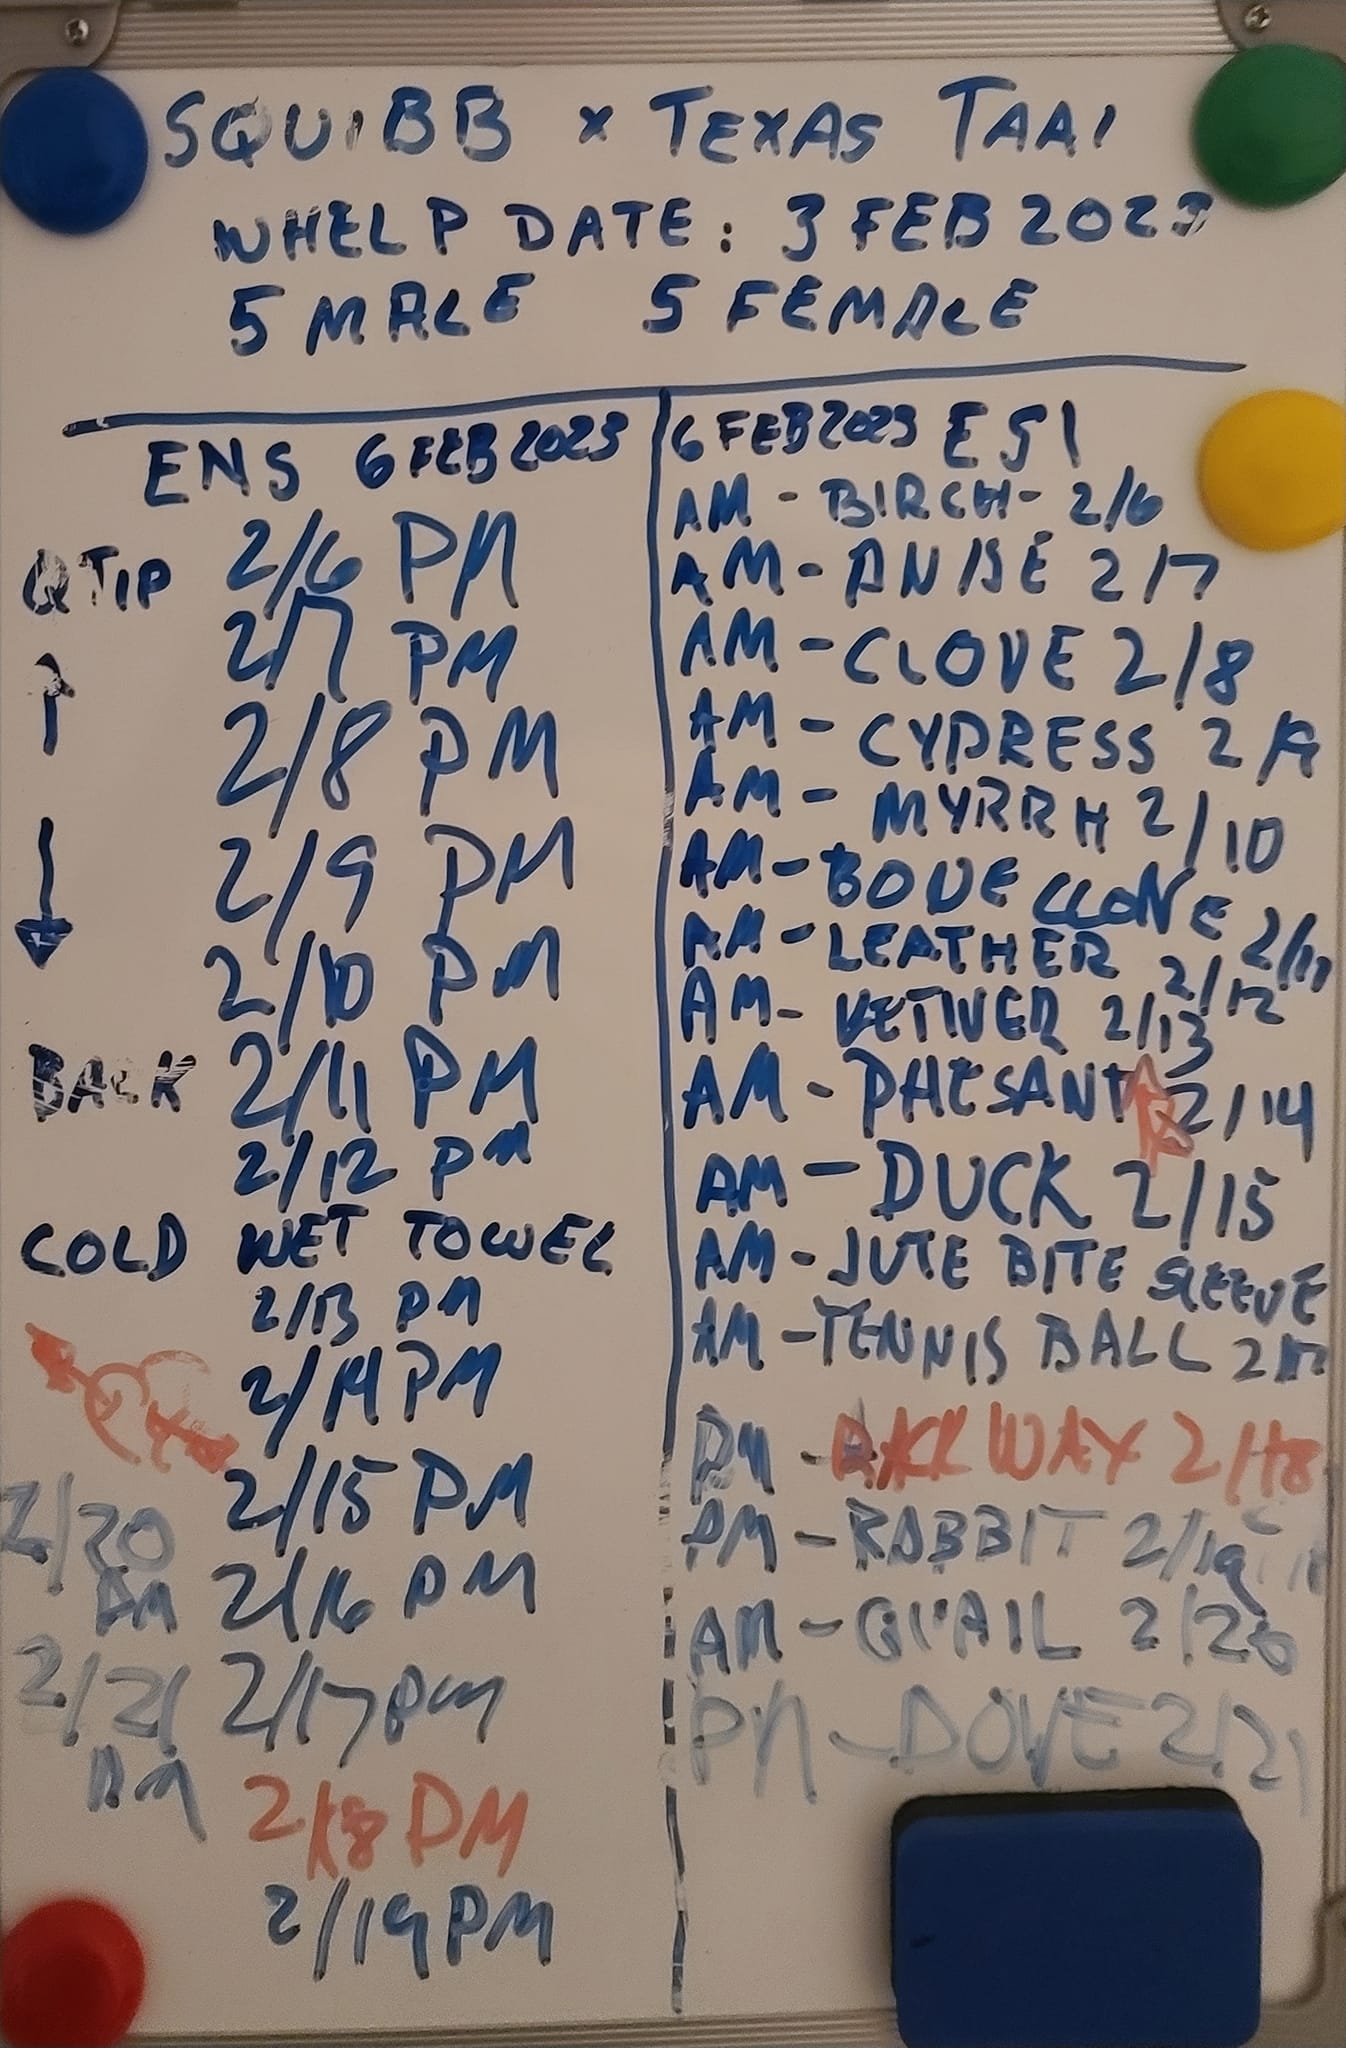 SQUIBB x TEXAS TAAI
WHELP DATE: 3 FEB 2023
5 MALE 5 FEMALE
ENS 6 FEB 2023
QTIP
2/6 PM
2/7 PM
2/8 PM
2/9 PM
2/10 PM
BACK 2/11 PM
2/12 PM
COLD WET TOWEL
2/13 PM
2/14 PM
2/15 PM
2/16 PM
2/17 PM
2/18 PM
2/19 PM
2/20
AM
2/21
AM
6 FEB 2023 ESI
AM - BIRCH - 2/6
AM - ANISE 2/7
AM - CLOVE 2/8
AM - CYPRESS 2/9
AM - MYRRH 2/10
AM - BONE CLONE 2/11
AM - LEATHER 2/12
AM - VETIVER 2/13
AM - PHESANT 2/14
AM - DUCK 2/15
AM - JUTE BITE SLEEVE
AM - TENNIS BALL 2/17
PM - WAX 2/18
PM - RABBIT 2/19
AM - QUAIL 2/20
PM - DOVE 2/21